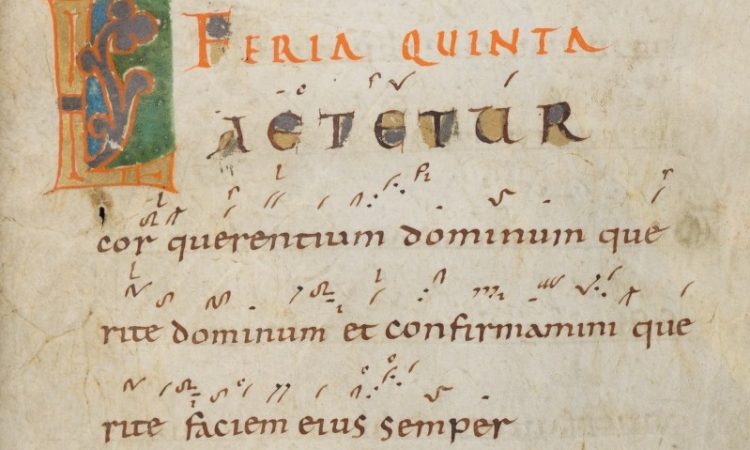 FERIA QUINTA
LAETETUR
cor querentium dominum que
rite dominum et confirmamini que
rite faciem eius semper